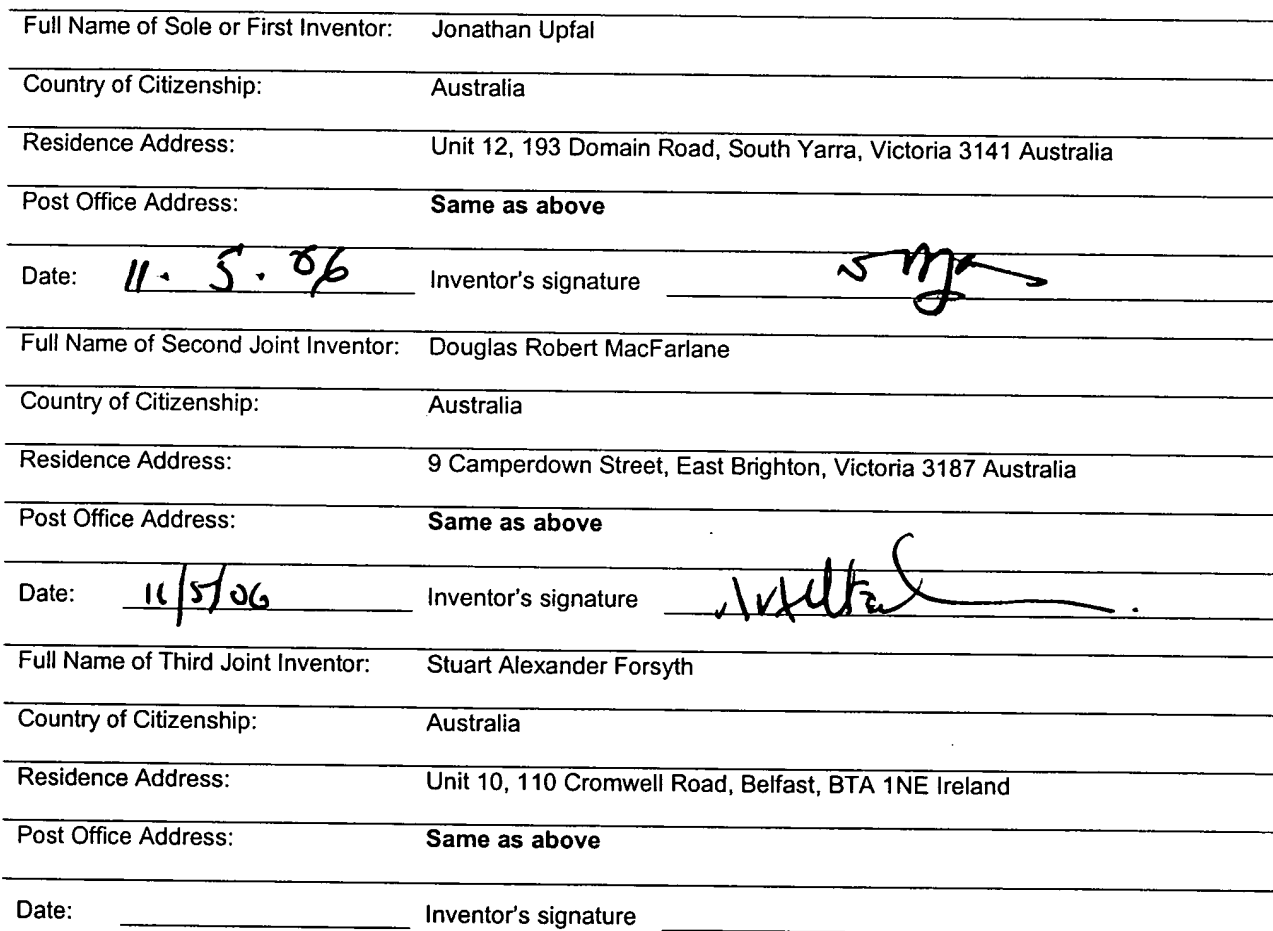 Full Name of Sole or First Inventor: Jonathan Upfal
Country of Citizenship: Australia
Residence Address: Unit 12, 193 Domain Road, South Yarra, Victoria 3141 Australia
Post Office Address: Same as above
Date: 11. 5. 06 Inventor's signature
Full Name of Second Joint Inventor: Douglas Robert MacFarlane
Country of Citizenship: Australia
Residence Address: 9 Camperdown Street, East Brighton, Victoria 3187 Australia
Post Office Address: Same as above
Date: 11/5/06 Inventor's signature
Full Name of Third Joint Inventor: Stuart Alexander Forsyth
Country of Citizenship: Australia
Residence Address: Unit 10, 110 Cromwell Road, Belfast, BTA 1NE Ireland
Post Office Address: Same as above
Date: Inventor's signature